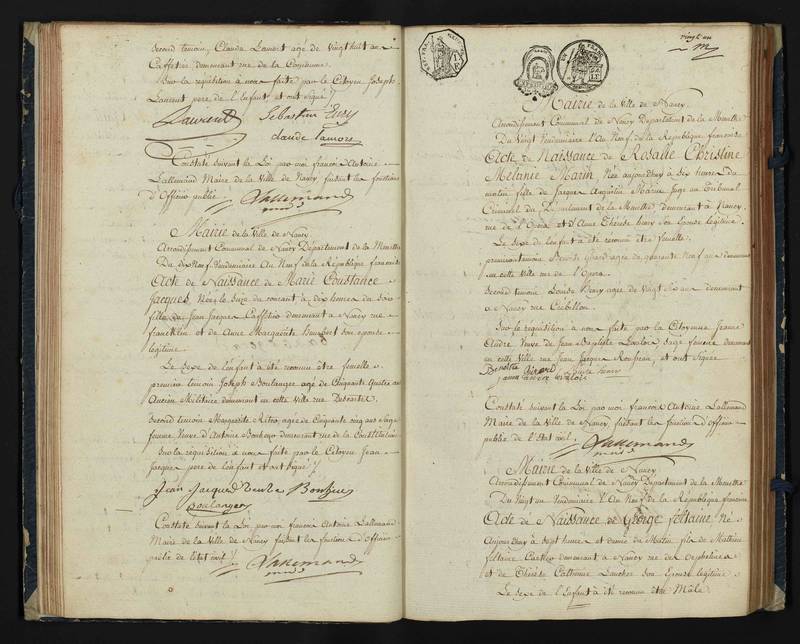 Second temoin, Claude Lamort agé de vingt huit ans
Caffetier demeurant rue de la Commune
Sur la requisition à nous faite par le Citoyen Joseph
Laurent pere de l'Enfant et ont Signé
Laurent Sebastien
Claude Lamort
Constaté Suivant la Loi par moi françois Antoine
Lallemand Maire de la Ville de Nancy faisant les fonctions
d'Officier public
Lallemand
Mairie de la Ville de Nancy
Arrondissement Communal de Nancy Département de la Meurthe
Du dix Neuf Vendemiaire An Neuf de la République française
Acte de Naissance de Marie Constance
Jacques, Née le Seize du courant à dix heures du Soir
fille de Jean Jacques Caffetier demeurant à Nancy rue
francklin et de Anne Marguerite son épouse
legitime
Le Sexe de l'enfant à été reconnu être femelle
premier temoin Joseph Boulanger agé de Cinquante Quatre ans
Ancien Militaire demeurant en cette Ville rue Descartes
Second temoin Marguerite agée de Cinquante cinq ans Sage
femme Veuve d'Antoine demeurant rue de la Constitution
Sur la requisition à nous faite par le Citoyen Jean
Jacques pere de l'enfant et ont Signé
Jean Jacques veuve
Boulanger
Constaté Suivant la Loi par moi françois Antoine Lallemand
Maire de la Ville de Nancy faisant les fonctions d'Officier
public de l'état civil
Lallemand
vingt un
Mairie de la Ville de Nancy
Arrondissement Communal de Nancy Département de la Meurthe
Du Vingt Vendemiaire l'An Neuf de la République française
Acte de Naissance de Rosalie Christine
Melanie Marin Née aujourd'huy à Six heures du
matin fille de Jacques Augustin Marin Juge au Tribunal
Criminel du Département de la Meurthe demeurant à Nancy
rue de l'Opera et d'Anne Thérese henry Son Epouse legitime
Le Sexe de l'enfant à été reconnu être femelle
premier temoin agée de quarante Neuf ans demeurant
en cette Ville rue de l'Opera
Second temoin Louise henry agée de Vingt ans demeurant
à Nancy rue Crébillon
Sur la requisition à nous faite par la Citoyenne Jeanne
Veuve de Jean Baptiste Sage femme demeurant
en cette Ville rue Jean Jacques Rousseau, et ont Signé
Louise henry
Constaté Suivant la Loi par moi françois Antoine Lallemand
Maire de la Ville de Nancy, faisant les fonctions d'Officier
public de l'Etat civil
Lallemand
Mairie de la Ville de Nancy
Arrondissement Communal de Nancy Département de la Meurthe
Du Vingt un Vendemiaire l'An Neuf de la République française
Acte de Naissance de George foltaine né
Aujourd'huy à Sept heures et demie du Matin fils de Mathieu
foltaine demeurant à Nancy rue des Orphelines
et de Thérèse Catherine Son Epouse legitime
Le Sexe de l'Enfant à été reconnu être Mâle